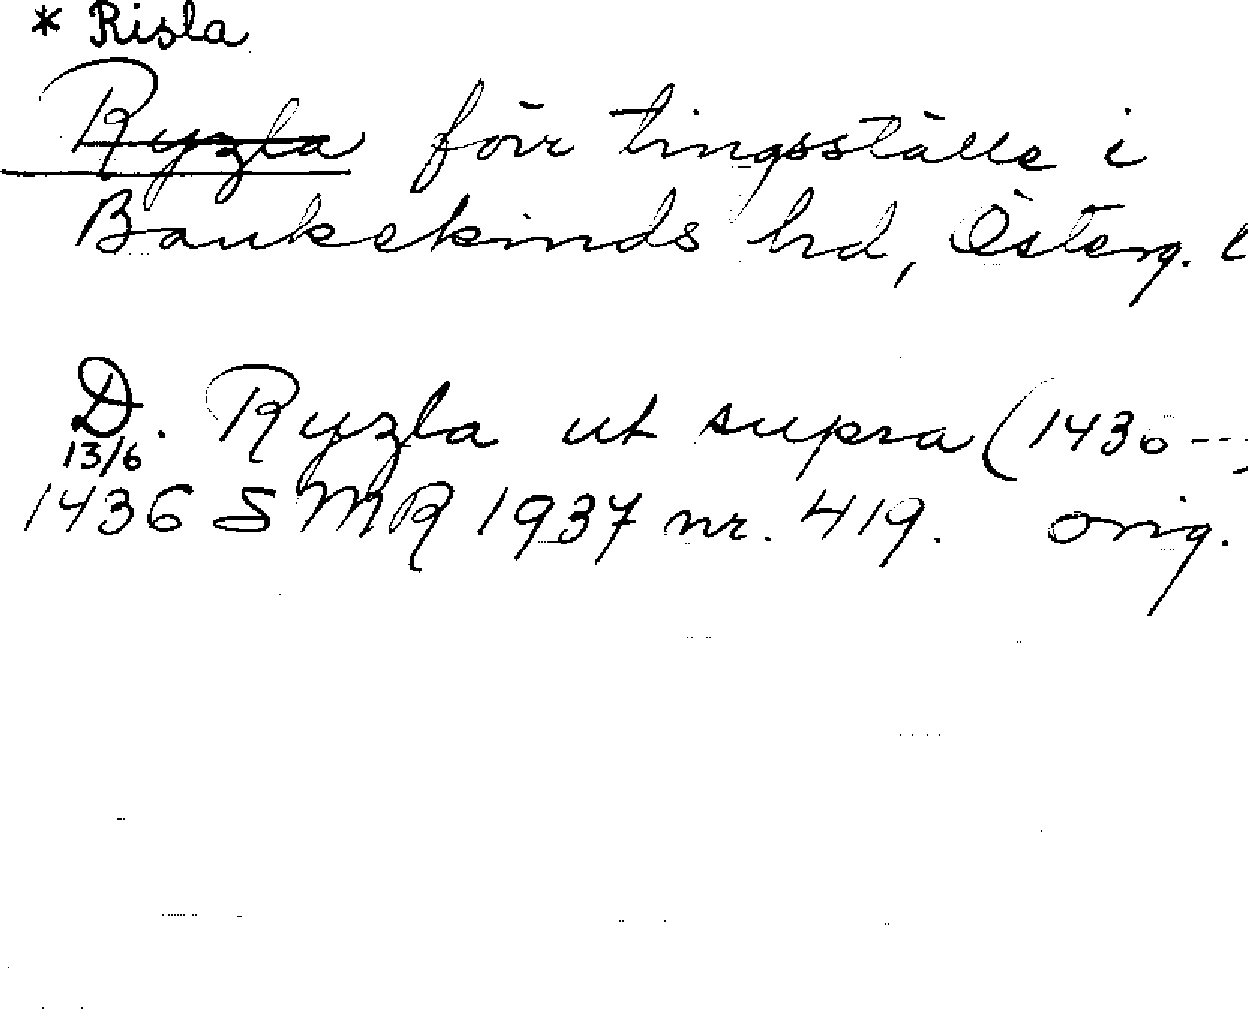 * Risla
Ryzla förr tingsställe i
Bankekinds hd, Österg. l
D. Ryzla ut supra (1436 ---)
13/6
1436 SMR 1937 nr. 419. orig.